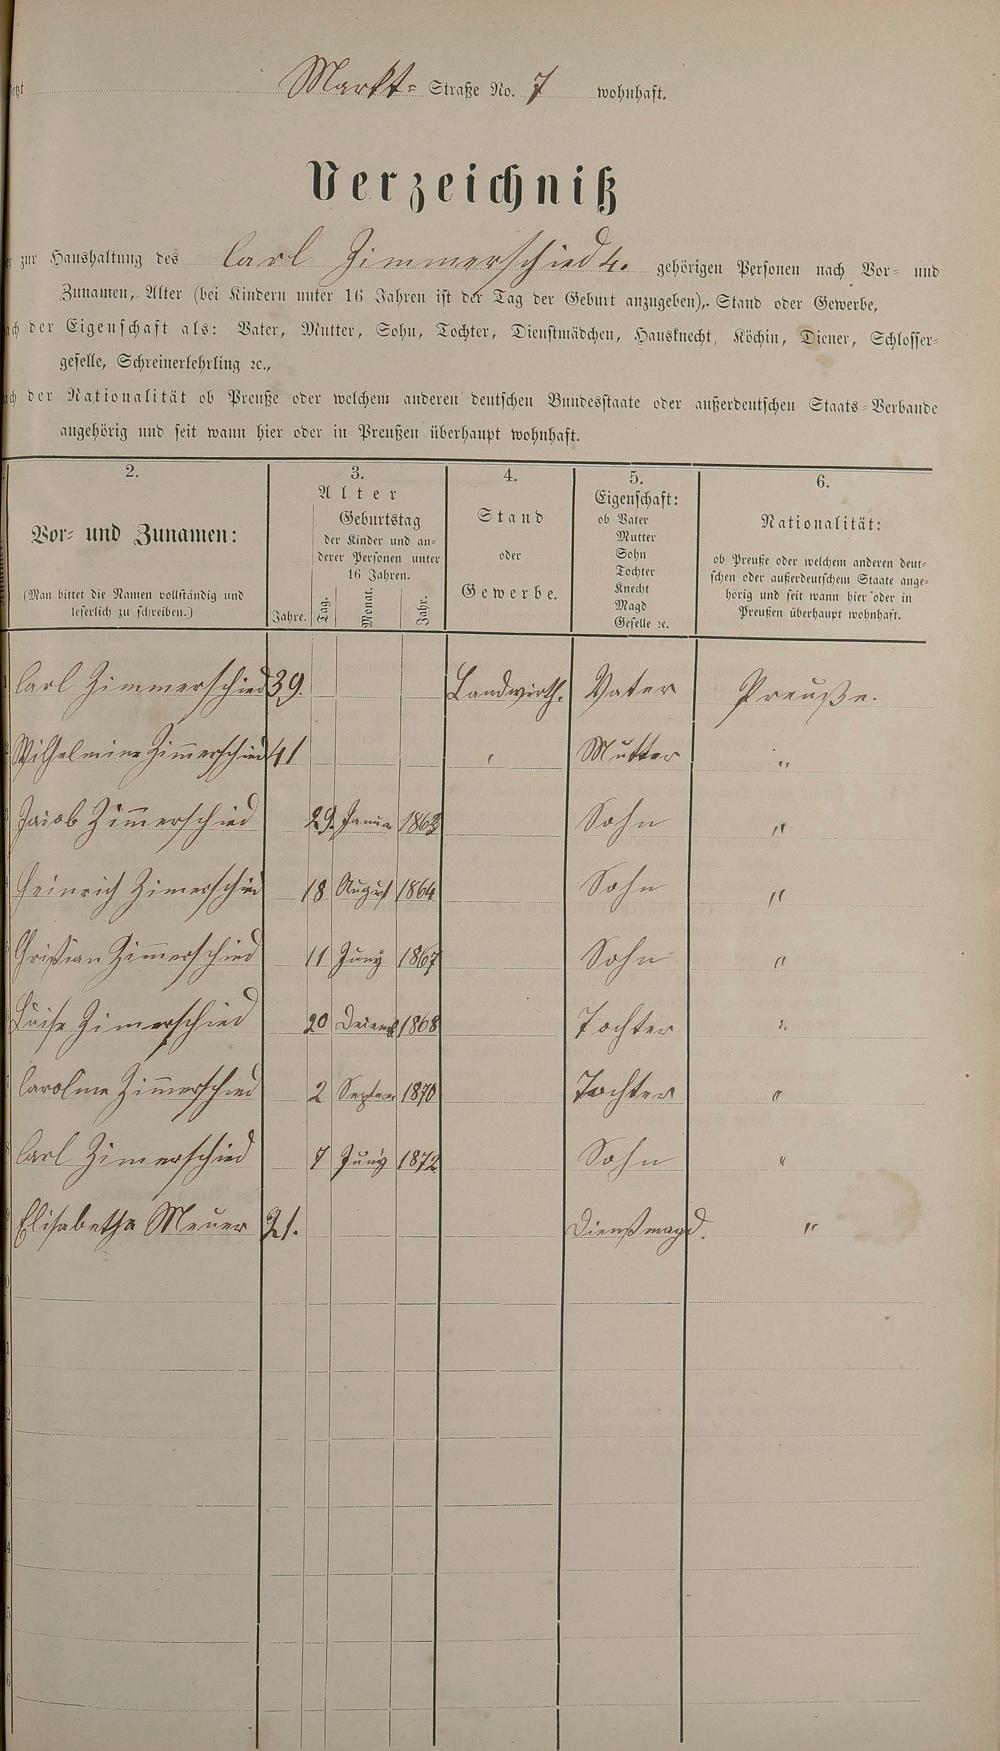 Markt- Straße No. 7 wohnhaft.
Verzeichniß
zur Haushaltung des Carl Zimmerschied 4. gehörigen Personen nach Vor- und
Zunamen, Alter (bei Kindern unter 16 Jahren ist der Tag der Geburt anzugeben), Stand oder Gewerbe,
der Eigenschaft als: Vater, Mutter, Sohn, Tochter, Dienstmädchen, Hausknecht, Köchin, Diener, Schlosser-
geselle, Schreinerlehrling ꝛc.,
der Nationalität ob Preuße oder welchem anderen deutschen Bundesstaate oder außerdeutschen Staats-Verbande
angehörig und seit wann hier oder in Preußen überhaupt wohnhaft.
2. 3. 4. 5. 6.
Vor- und Zunamen:
(Man bittet die Namen vollständig und
leserlich zu schreiben.)
Alter
Geburtstag
der Kinder und an-
derer Personen unter
16 Jahren.
Jahre. Tag. Monat. Jahr.
Stand
oder
Gewerbe.
Eigenschaft:
ob Vater
Mutter
Sohn
Tochter
Knecht
Magd
Geselle ꝛc.
Nationalität:
ob Preuße oder welchem anderen deut-
schen oder außerdeutschem Staate ange-
hörig und seit wann hier oder in
Preußen überhaupt wohnhaft.
Carl Zimmerschied 39. Landwirth. Vater Preuße.
Wilhelmine Zim̄erschied 41 Mutter "
Jacob Zim̄erschied 29. Janua 1863 Sohn "
Heinrich Zimerschied 18 August 1864 Sohn "
Christian Zim̄erschied 11 Juny 1867 Sohn "
Luise Zimerschied 20 Decemb 1868 Tochter "
Caroline Zim̄erschied 2 Septem 1870 Tochter "
Carl Zimerschied 7 Juny 1872 Sohn "
Elisabetha Meuer 21. Dienstmagd. "